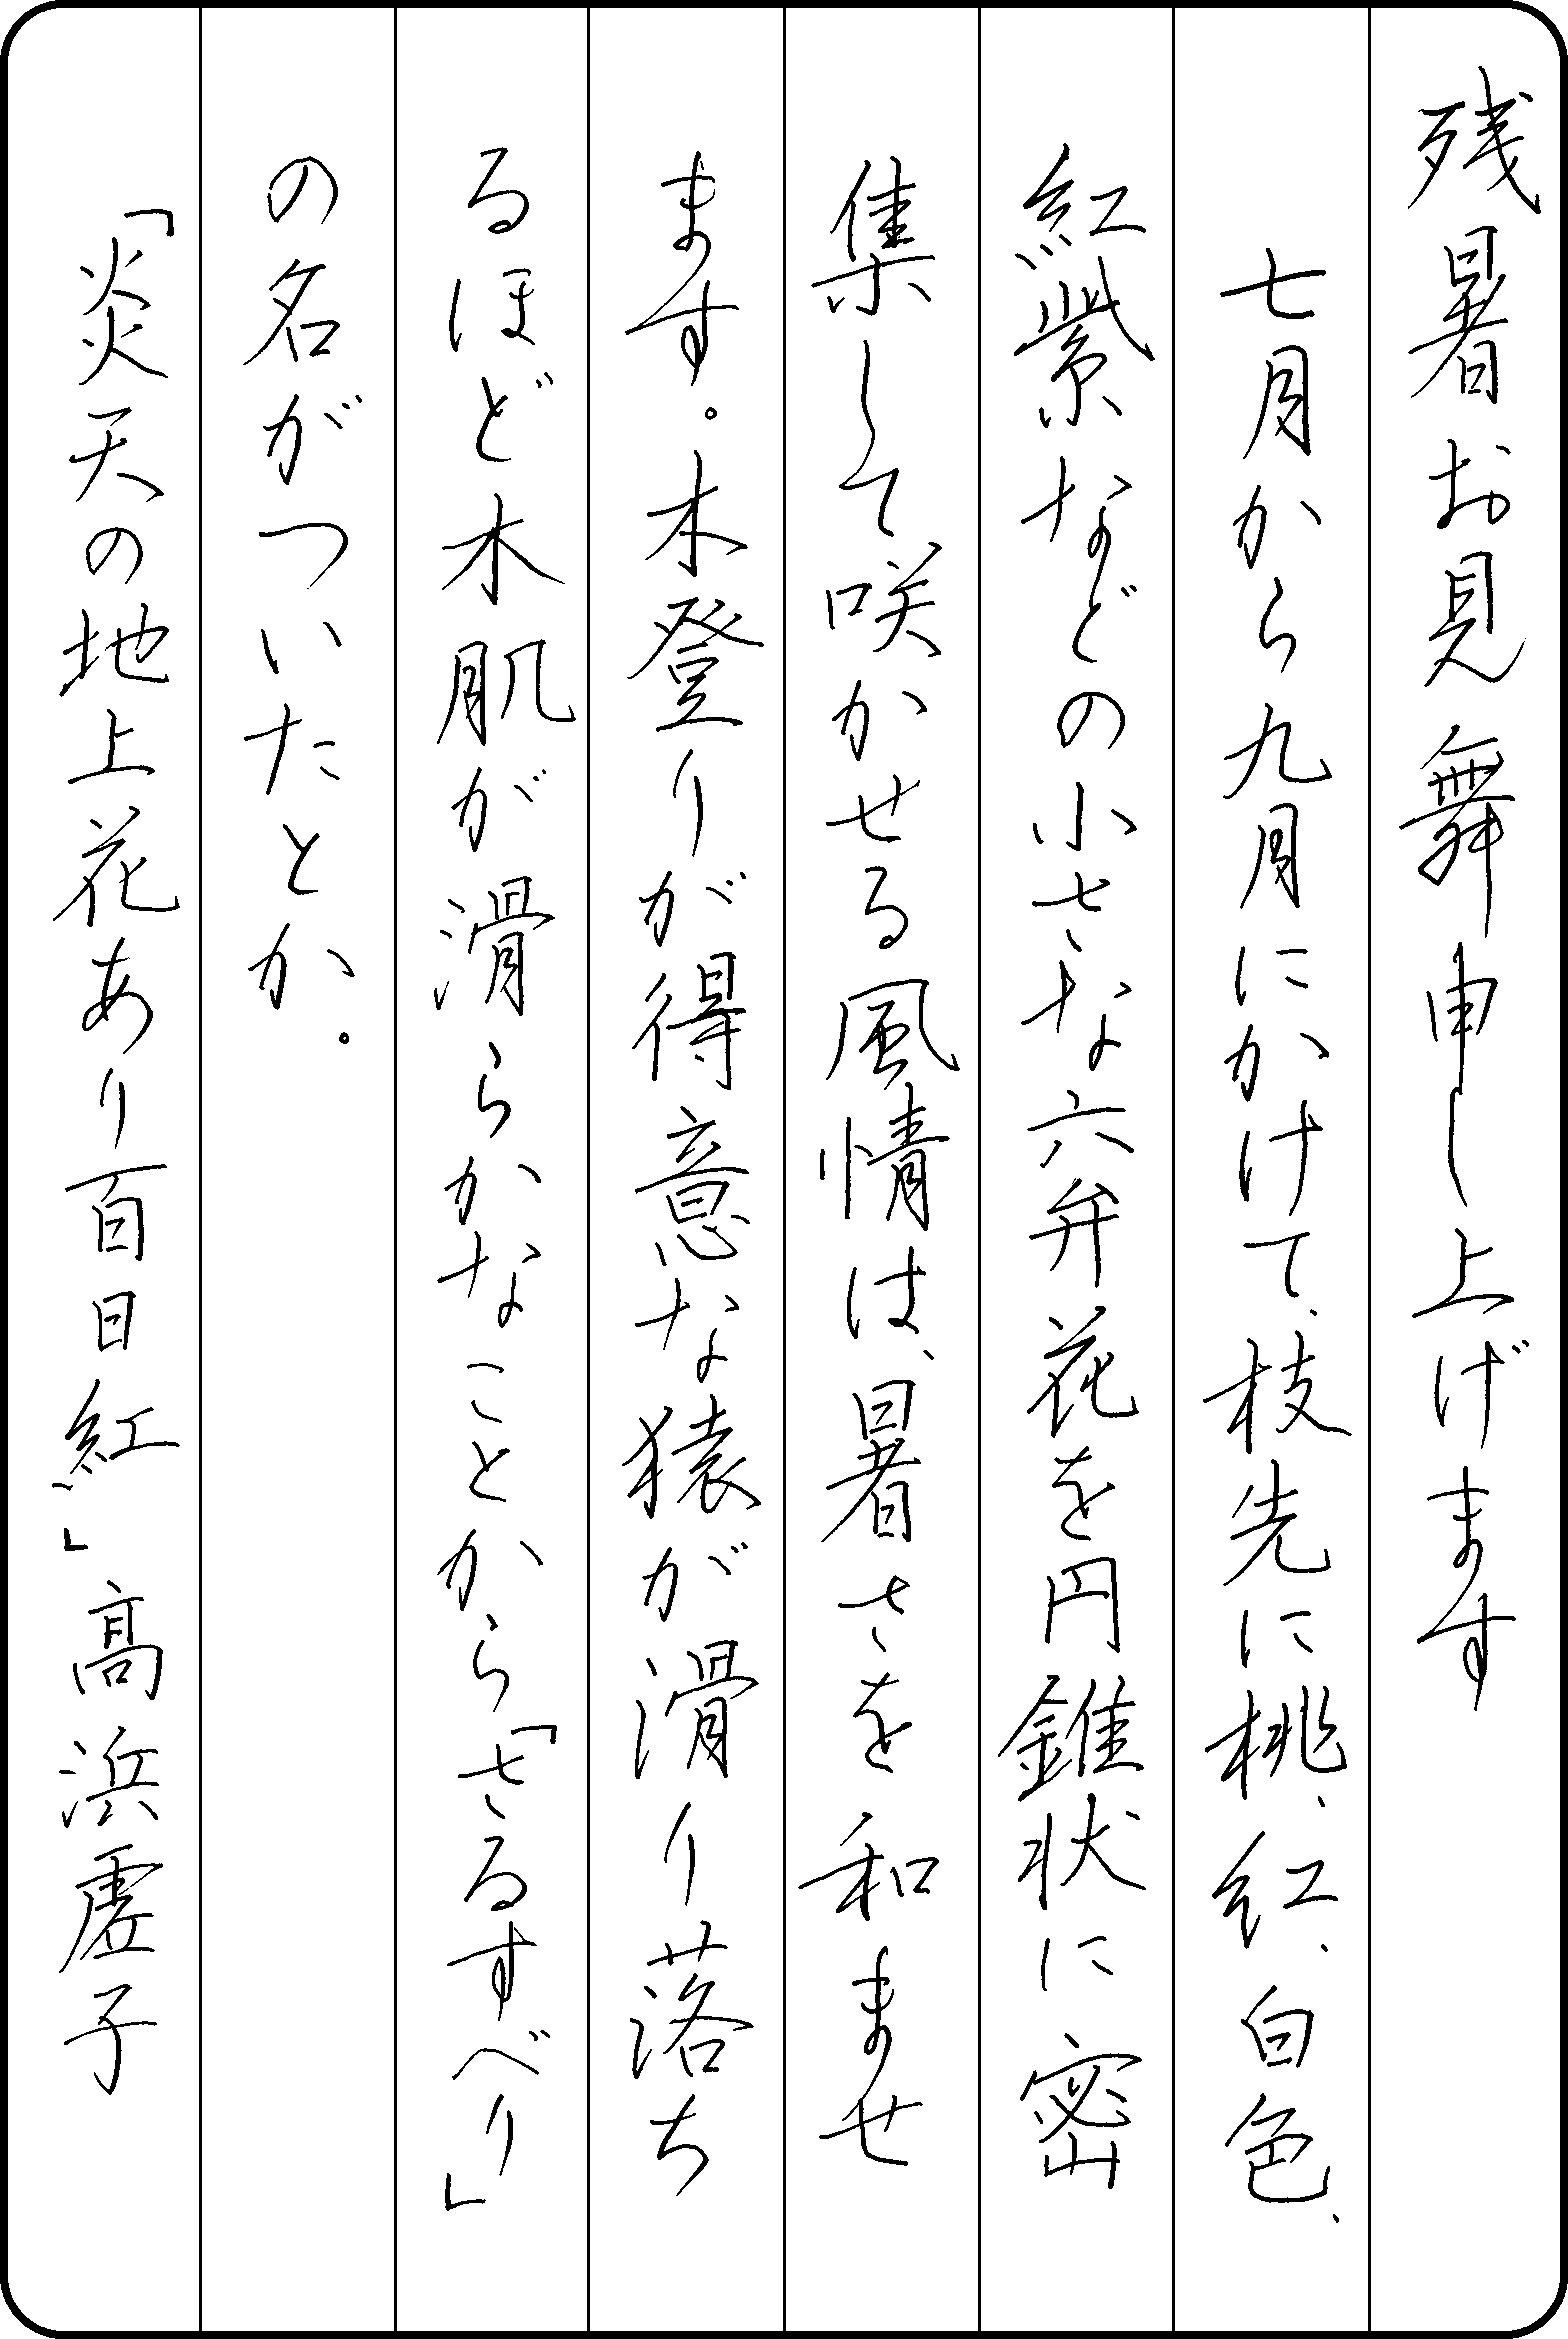 残暑お見舞申し上げます
七月から九月にかけて、枝先に桃、紅、白色、
紅紫などの小さな六弁花を円錐状に密
集して咲かせる風情は、暑さを和ませ
ます。木登りが得意な猿が滑り落ち
るほど木肌が滑らかなことから「さるすべり」
の名がついたとか。
「炎天の地上花あり百日紅」高浜虚子